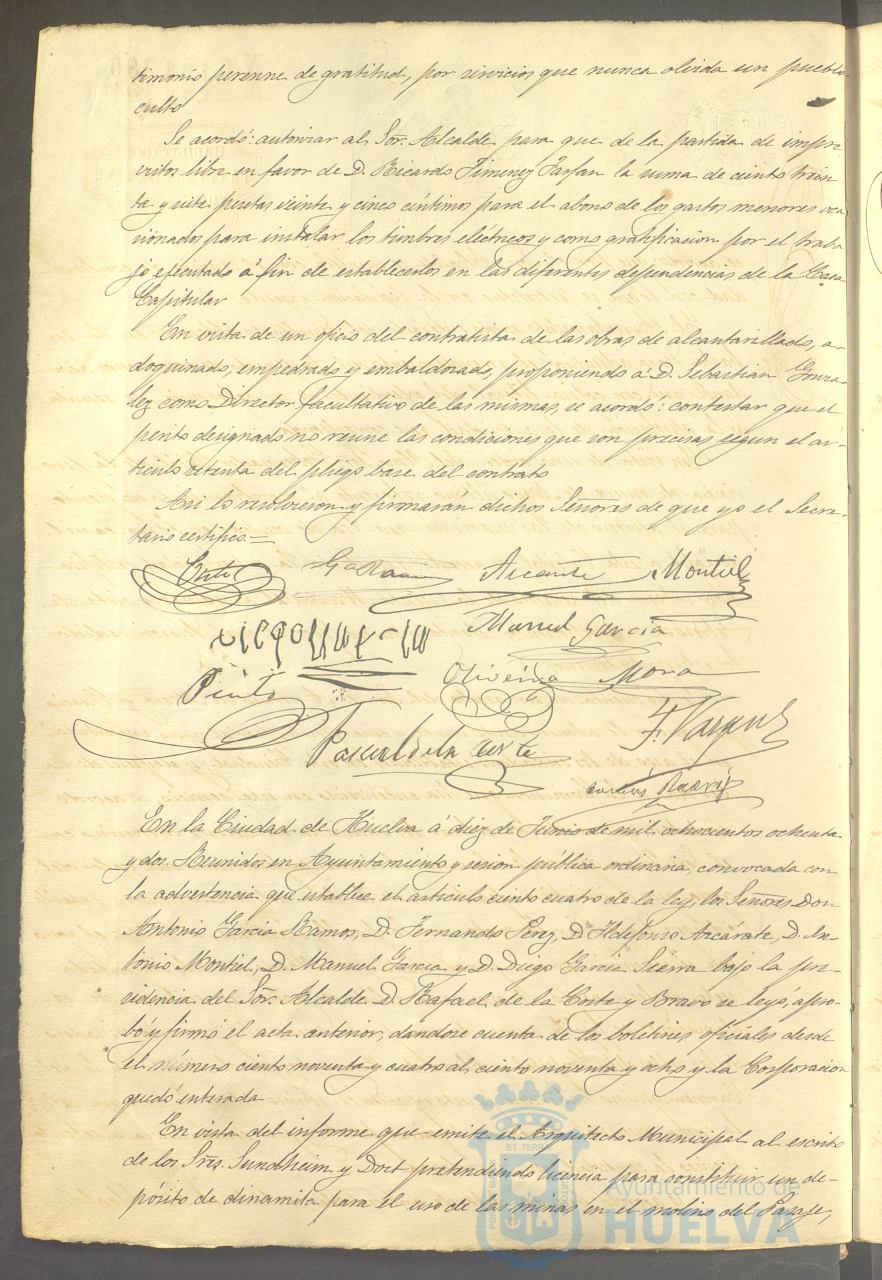 timonio perenne de gratitud, por servicios que nunca olvida un pueblo
culto
Se acordó: autorizar al Sor. Alcalde para que de la partida de impre-
vistos libre en favor de D. Ricardo Jimenez Farfan la suma de ciento trein-
ta y siete pesetas veinte y cinco céntimos para el abono de los gastos menores oca
sionados para instalar los timbres eléctricos y como gratificacion por el traba
jo ejecutado á fin de establecerlos en las diferentes dependencias de la Casa
Capitular
En vista de un oficio del contratista de las obras de alcantarillado, a-
doquinado, empedrado y embaldosado, proponiendo á D. Sebastian Gonza-
lez como Director facultativo de las mismas, se acordó: contestar que el
perito designado no reune las condiciones que son precisas segun el ar-
tículo setenta del pliego base del contrato
Asi lo resolvieron y firmarán dichos Señores de que yo el Secre-
tario certifico =
Corte Garcia Azcarate Montiel
Manuel Garcia
Pinto Oliveira Mora
Pascual de la Corte F. Vazquez
En la Ciudad de Huelva á diez de Junio de mil ochocientos ochenta
y dos. Reunidos en Ayuntamiento y sesion pública ordinaria, convocada con
la advertencia que establece el artículo ciento cuatro de la ley, los Señores Don
Antonio Garcia Ramos, D. Fernando Perez, D. Ildefonso Azcárate, D. An-
tonio Montiel, D. Manuel Garcia y D. Diego Garcia Sierra bajo la pre-
sidencia del Sor. Alcalde D. Rafael de la Corte y Bravo se leyó, apro-
bó y firmó el acta anterior, dandose cuenta de los boletines oficiales desde
el número ciento noventa y cuatro al ciento noventa y ocho y la Corporacion
quedó enterada
En vista del informe que emite el Arquitecto Municipal al escrito
de los Sres. Sundheim y Doet pretendiendo licencia para construir un de-
pósito de dinamita para el uso de las minas en el molino del Pasage,
Ayuntamiento de
HUELVA